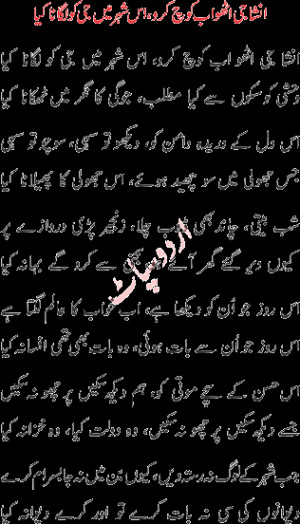 انشا جی اٹھو اب کوچ کرو، اس شہر میں جی کو لگانا کیا
انشا جی اٹھو اب کوچ کرو، اس شہر میں جی کو لگانا کیا
وحشی کو سکوں سے کیا مطلب، جوگی کا نگر میں ٹھکانا کیا
اس دل کے دریدہ دامن کو، دیکھو تو سہی، سوچو تو سہی
جس جھولی میں سو چھید ہوئے، اس جھولی کا پھیلانا کیا
شب بیتی، چاند بھی ڈوب چلا، زنجیر پڑی دروازے پر
کیوں دیر گئے گھر آئے سے کرو گے بہانہ کیا
اس روز جو اُن کو دیکھا ہے، اب خواب کا عالم لگتا ہے
اس روز جو اُن سے بات ہوئی، وہ بات بھی تھی افسانہ کیا
اس حسن کے سچے موتی کو، ہم دیکھ سکیں پر چھو نہ سکیں
جسے دیکھ سکیں پر چھو نہ سکیں، وہ دولت کیا، وہ خزانہ کیا
جب شہر کے لوگ نہ رستہ دیں، کیوں بن میں نہ جا بسرام کرے
دیوانوں کی سی نہ بات کرے تو اور کرے دیوانہ کیا
اردو پوائنٹ